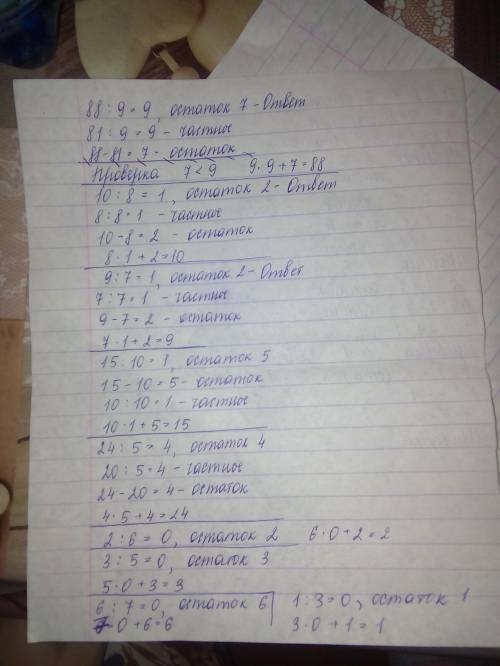 88 : 9 = 9, остаток 7 - Ответ
81 : 9 = 9 - частное
88-81 = 7 - остаток
Проверка 7 < 9 9·9+7=88
10 : 8 = 1, остаток 2 - Ответ
8 : 8 = 1 - частное
10-8 = 2 - остаток
8·1+2=10
9 : 7 = 1, остаток 2 - Ответ
7 : 7 = 1 - частное
9-7 = 2 - остаток
7·1+2=9
15 : 10 = 1, остаток 5
15-10 = 5 - остаток
10 : 10 = 1 - частное
10·1+5=15
24 : 5 = 4, остаток 4
20 : 5 = 4 - частное
24-20 = 4 - остаток
4·5+4=24
2 : 6 = 0, остаток 2 6·0+2=2
3 : 5 = 0, остаток 3
5·0+3=3
6 : 7 = 0, остаток 6 1 : 3 = 0, остаток 1
7·0+6=6 3·0+1=1